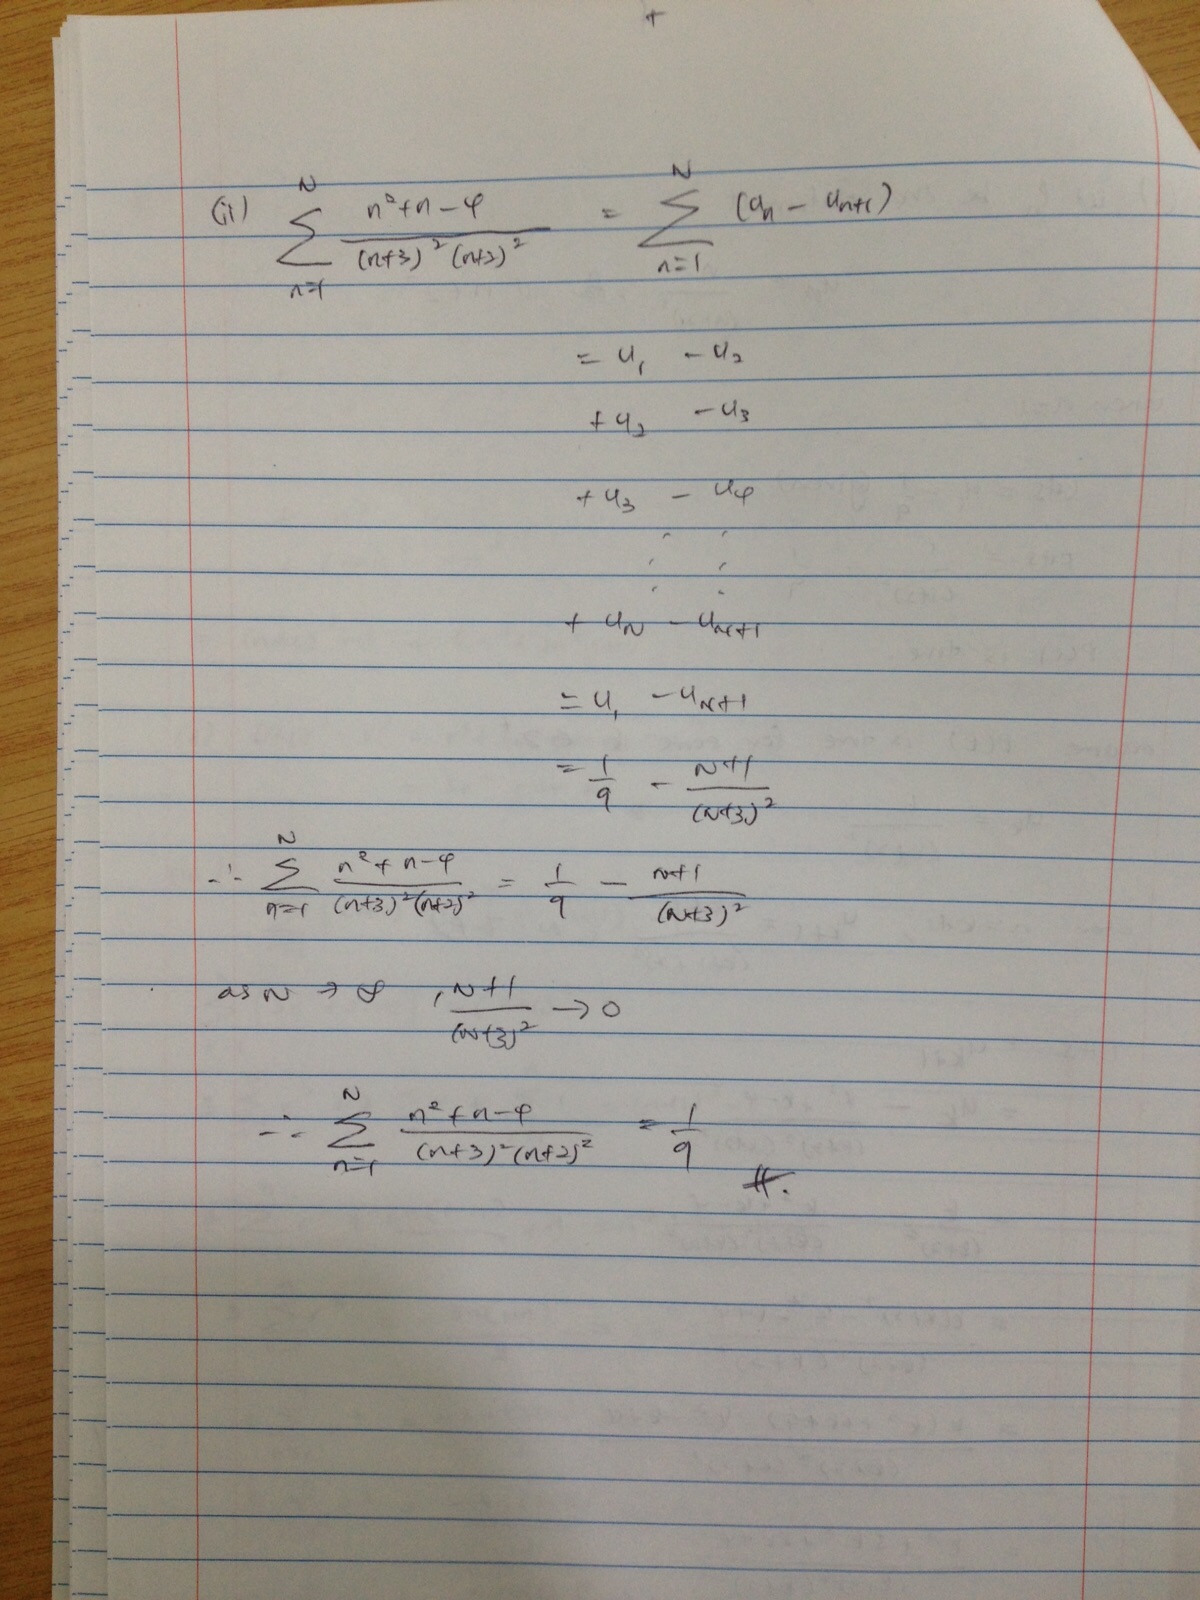 (ii) N∑n=1 (n²+n-4)/((n+3)²(n+2)²) = N∑n=1 (un - un+1)
= u1 - u2
+ u2 - u3
+ u3 - u4
+ uN - uN+1
= u1 - uN+1
= 1/9 - (N+1)/(N+3)²
∴ N∑n=1 (n²+n-4)/((n+3)²(n+2)²) = 1/9 - (N+1)/(N+3)²
as N → ∞ , (N+1)/(N+3)² → 0
∴ N∑n=1 (n²+n-4)/((n+3)²(n+2)²) = 1/9 #.